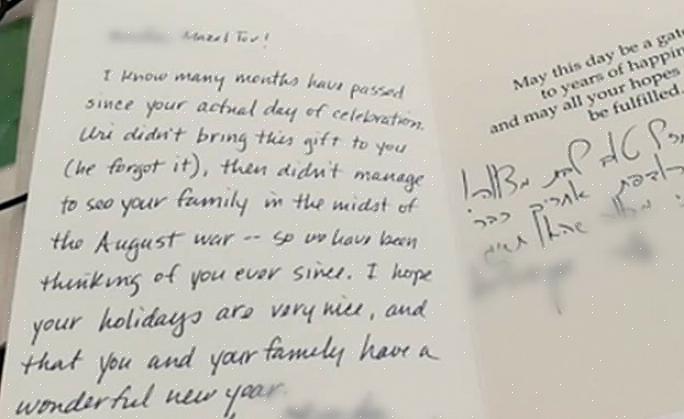 Mazel Tov!
I know many months have passed
since your actual day of celebration.
Uri didn't bring this gift to you
(he forgot it), then didn't manage
to see your family in the midst of
the August war -- so we have been
thinking of you ever since. I hope
your holidays are very nice, and
that you and your family have a
wonderful new year.
May this day be a gate
to years of happin
and may all your hopes
be fulfilled.
טוב לבת
אחרים כבר